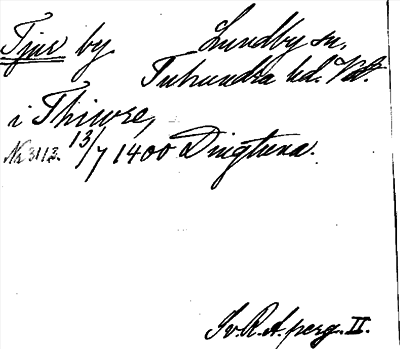 Tjur by Lundby sn,
Tuhundra hd. Vstm.
i Thiwre,
No 3113. 13/7 1400 Dingtuna.
Sv. R. A. perg. II.